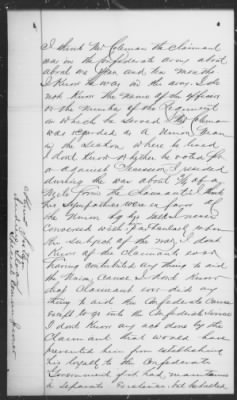 I think Mr Coleman the Claimant
was in the Confederate army about
about one year and ten months
I know he was in the army. I do
not know the name of the officers
or the number of the Regiment
in which he served. Mr Coleman
was regarded as a Union Man
in the section where he lived
I dont Know whether he voted for
or against Secession I resided
during the war about
Mile from the Claimant. I think
his sympathies were in favor of
the Union
Conversed with
the Subject of the war, I dont
Know of the Claimant ever
having contributed any thing to aid
the Union Cause I dont Know
that Claimant ever did any
thing to aid the Confederate Cause
except to go into the Confederate Service
I dont Know any act done by the
Claimant that would have
prevented him from establishing
his loyalty to the Confederate
Government if it had maintained
a separate existence, but he had
Special Commissioner